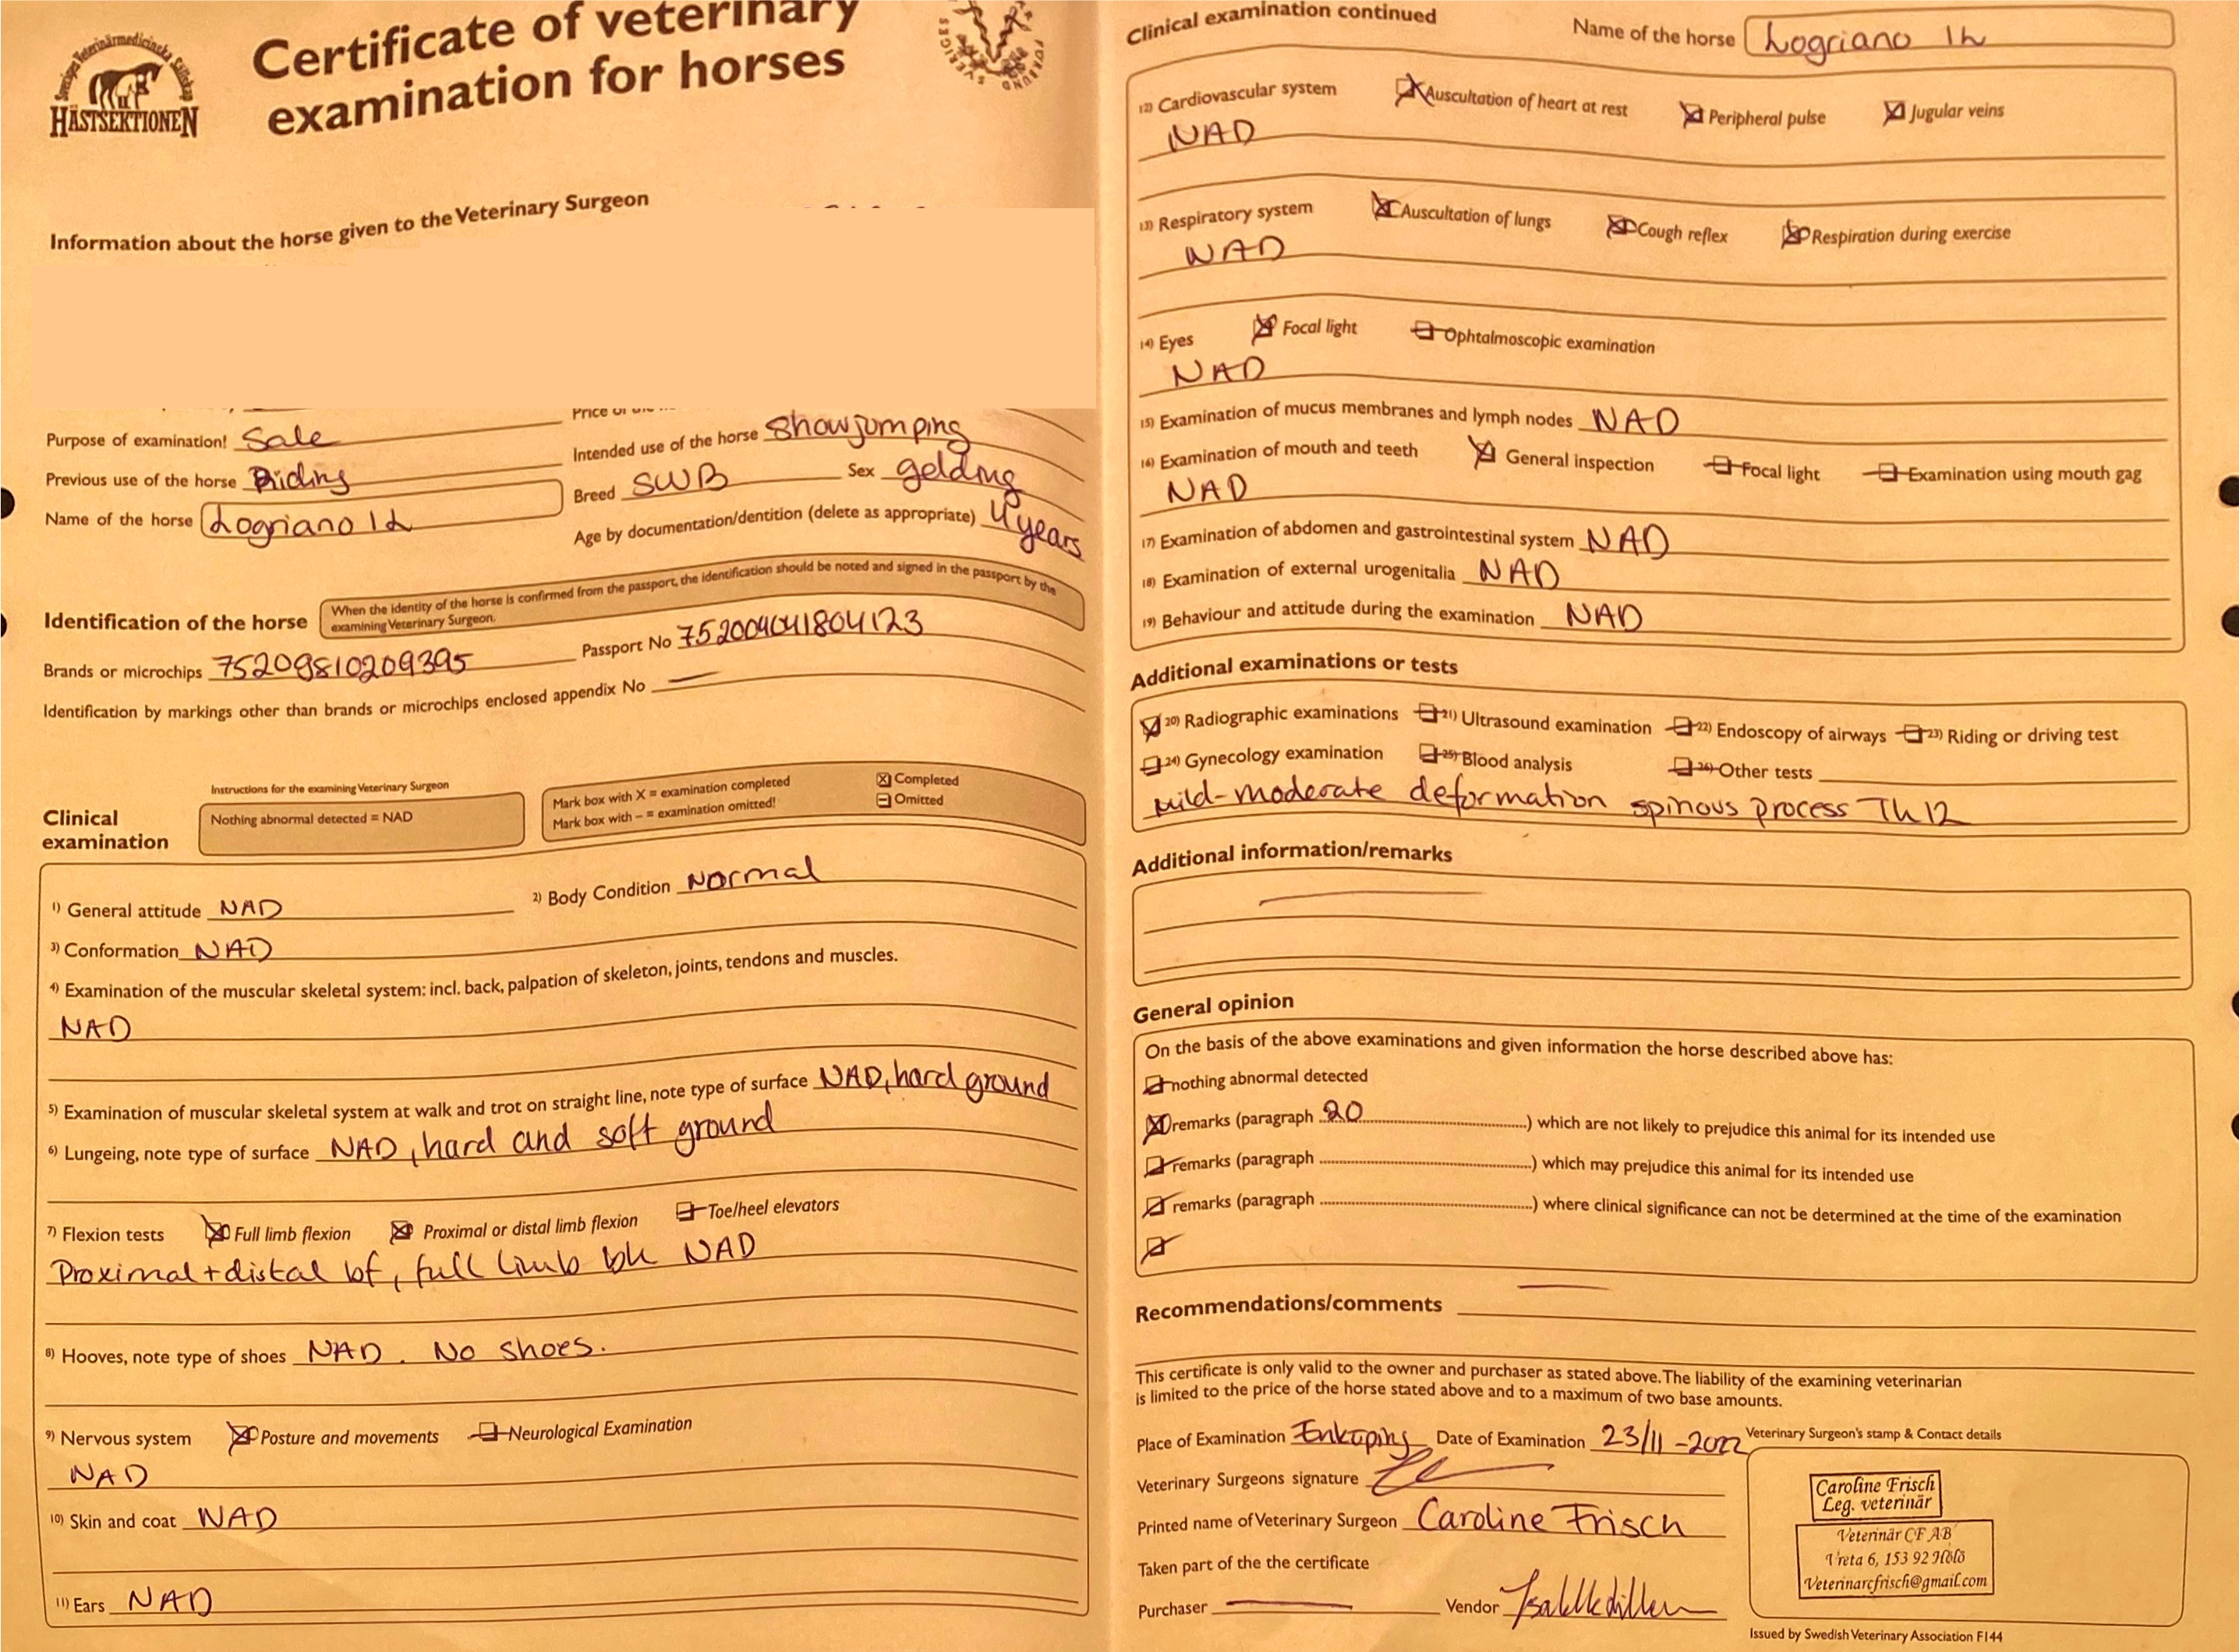 Svenska Veterinärmedicinska Sällskap
HÄSTSEKTIONEN
Certificate of veterinary
examination for horses
SVERIGES
FÖRBUND
Information about the horse given to the Veterinary Surgeon
Price of the
Purpose of examination! Sale
Intended use of the horse Showjumping
Previous use of the horse Riding
Breed SWB Sex gelding
Name of the horse Logriano 12
Age by documentation/dentition (delete as appropriate) 4 years
Identification of the horse
When the identity of the horse is confirmed from the passport, the identification should be noted and signed in the passport by the
examining Veterinary Surgeon.
Brands or microchips 75209810209395
Passport No 752009041804123
Identification by markings other than brands or microchips enclosed appendix No —
Clinical
examination
Instructions for the examining Veterinary Surgeon
Nothing abnormal detected = NAD
Mark box with X = examination completed
Mark box with – = examination omitted!
Completed
Omitted
1) General attitude NAD
2) Body Condition Normal
3) Conformation NAD
4) Examination of the muscular skeletal system: incl. back, palpation of skeleton, joints, tendons and muscles.
NAD
5) Examination of muscular skeletal system at walk and trot on straight line, note type of surface NAD, hard ground
6) Lungeing, note type of surface NAD, hard and soft ground
7) Flexion tests Full limb flexion Proximal or distal limb flexion Toe/heel elevators
Proximal + distal bf, full limb bh NAD
8) Hooves, note type of shoes NAD. No shoes.
9) Nervous system Posture and movements Neurological Examination
NAD
10) Skin and coat NAD
11) Ears NAD
Clinical examination continued
Name of the horse Logriano 12
12) Cardiovascular system Auscultation of heart at rest Peripheral pulse Jugular veins
NAD
13) Respiratory system Auscultation of lungs Cough reflex Respiration during exercise
NAD
14) Eyes Focal light Ophtalmoscopic examination
NAD
15) Examination of mucus membranes and lymph nodes NAD
16) Examination of mouth and teeth General inspection Focal light Examination using mouth gag
NAD
17) Examination of abdomen and gastrointestinal system NAD
18) Examination of external urogenitalia NAD
19) Behaviour and attitude during the examination NAD
Additional examinations or tests
20) Radiographic examinations 21) Ultrasound examination 22) Endoscopy of airways 23) Riding or driving test
24) Gynecology examination 25) Blood analysis 26) Other tests
Mild-moderate deformation spinous process Th12
Additional information/remarks
General opinion
On the basis of the above examinations and given information the horse described above has:
nothing abnormal detected
remarks (paragraph 20) which are not likely to prejudice this animal for its intended use
remarks (paragraph ) which may prejudice this animal for its intended use
remarks (paragraph ) where clinical significance can not be determined at the time of the examination
Recommendations/comments —
This certificate is only valid to the owner and purchaser as stated above. The liability of the examining veterinarian
is limited to the price of the horse stated above and to a maximum of two base amounts.
Place of Examination Enköping Date of Examination 23/11 -2022
Veterinary Surgeon's stamp & Contact details
Veterinary Surgeons signature
Printed name of Veterinary Surgeon Caroline Frisch
Caroline Frisch
Leg. veterinär
Veterinär CF AB
Vreta 6, 153 92 Hölö
Veterinarcfrisch@gmail.com
Taken part of the the certificate
Purchaser — Vendor
Issued by Swedish Veterinary Association F144